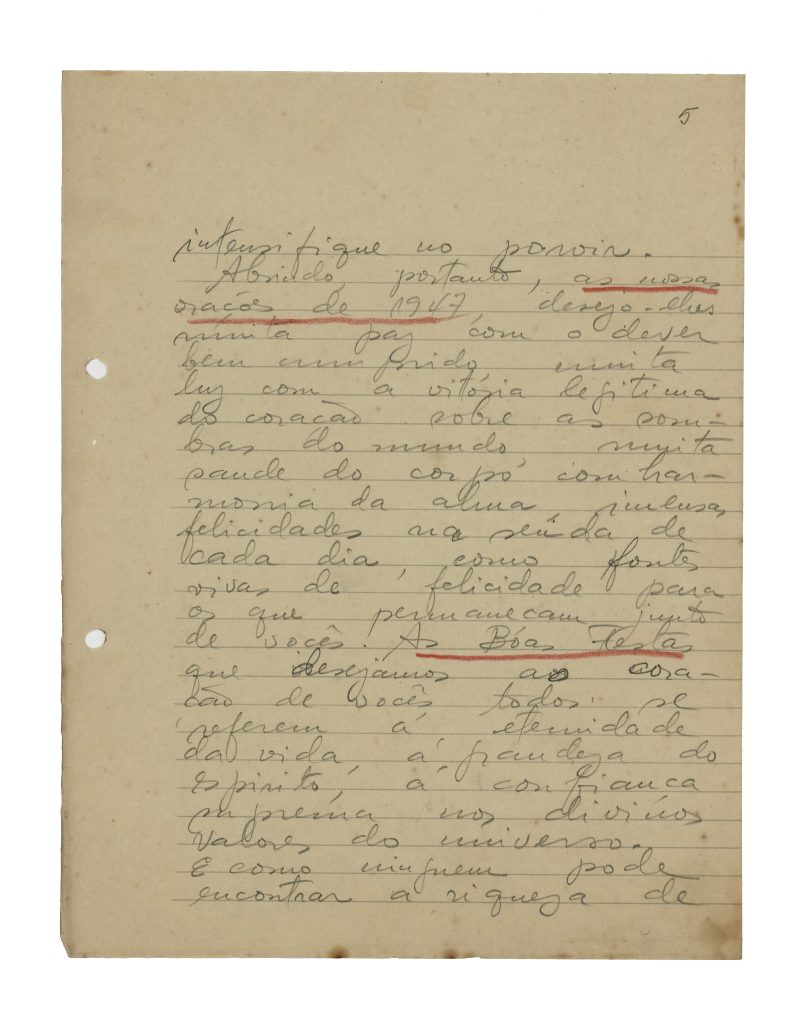 5
intensifique no porvir.
Abrindo, portanto, as nossas
oracões de 1947 desejo-lhes
muita paz com o dever
bem cumprido, muita
luz com a vitória legitima
do coracão sobre as som-
bras do mundo, muita
saude do corpo com har-
monia da alma, imensas
felicidades na senda de
cada dia, como fontes
vivas de felicidade para
os que permanecam junto
de vocês. As Bôas Festas
que desejamos ao cora-
cão de vocês todos se
referem á eternidade
da vida, á grandeza do
espirito, á confianca
suprema nos divinos
valores do universo.
E como ninguem pode
encontrar a riqueza de